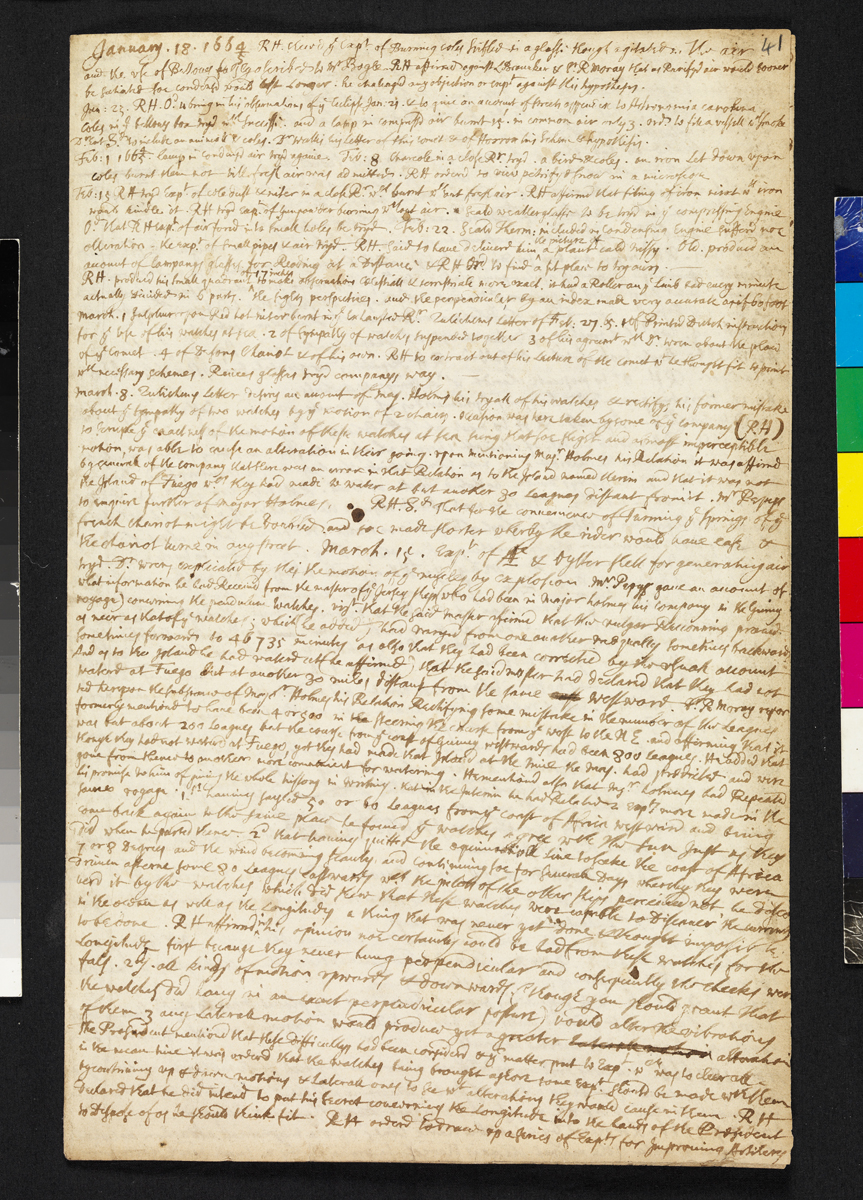 41
January. 18. 166 4/5 RH. shewd ye Expt of Burning coles stifled in a glasse though agitated. The air
and the use of Bellows to Mr Boyle. RH affirmd against Brouncker & Sr R Moray that as Rarifyd air would sooner
be satiated soe condensd would last Longer. he challengd any objection or Expt against this hypothesis.
Jan: 23. RH. Od to bring in his observations of ye Eclipse Jan. 21. & to give an account of trees opposd in to Hieronimia carolina
coles in ye bellows box tryd wth successe. and a lamp in compressd air burnt 15. in common air only 3. Ordd to fill a vessell wth smoke
to include an animal & coles. Dr Wallis his letter of this comet & of Horrox his scheme & hypothesis.
Feb: 1 166 4/5. Lamp in condensd air tryd againe. Feb: 8 Charcole in a close Rr. tryd. a bird & coles. an iron let down upon
coles burnt them not till fresh air was admitted. RH orderd to view petrifyd snow in a microscope.
Feb: 15 RH tryd Expt of cole dust & niter in a close Rr wch burnt wthout fresh air. RH affirmd that filing of iron mixt wth iron
would kindle it. RH tryd Expt of gunpowder burning wthout air. a Seald weatherglasse to be tryd in ye compressing Engine
Od that RH expt of air forcd into small holes be tryd. Feb: 22. Seald Therm: included in condensing Engine sufferd noe
alteration. the expt of small pipes & air tryd. RH. said to have deliverd him the picture of a plant cald nissy. Od. produce an
account of Campanys glasses, for Reading at a Distance & RH Ord to find a fit place to try ours.
RH. produced his small quadrant of 17 inches to make observations celestiall & terrestriale more exact. it had a Roller on ye limb had every minute
actually divided in 6 parts. the sights perspectives. and the perpendicular by an index made very accurate as if 60 foot
march. 1 sulphur upon Red hot niter burnt in ye Exhausted Rr. Zulichems Letter of Feb. 27. 65. 1st of Printed Dutch instructions
for ye use of his watches at sea. 2 of sympathy of watches suspended together. 3 of his agreemt wth Dr wren about the place
of ye comet. 4 of De sons Chariot & of his own. RH to extract out of his Lecture of the comet wt he thought fit to print
wth necessary schemes. Reives glasses tryd companys way.
march. 8. Zulichems Letter desiring an account of May. Holmes his tryall of his watches & rectifys his former mistake
about ye sympathy of two watches by ye motion of 2 chairs. occasion was here taken by some of ye company (RH)
to scruple ye exactness of the motion of these watches at sea seing that soe slight and almost imperceptible
motion, was able to cause an alteration in their going. upon mentioning Majr Holmes his Relation it was affirmd
by severall of the company that there was an error in that Relation as to the Island named therin and that it was not
the Island of Fuego wch they had made to water at but another 30 Leagues distant from it. Mr Pepys
to enquire further of major Holmes. RH. Sd that for the convenience of turning ye springs of ye
french chariot might be bowried and soe made shorter wherby the rider would have ease &
the chariot turne in any street. March. 15. Expt of & oyster shell for generating air
tryd. Dr wren explicated by this the motion of ye muscles by explosion. Mr Pepys gave an account of
what information he had Received from the master of ye Jersey ship who had been in major holmes his company in the Guiny
voyage) concerning the pendulum watches. vizt that the said master affirmd that the vulgar Reconning proved
as neer as that of ye watches, which (he added) had varyed from one another unequally sometimes backwards
sometimes forwards to 4 6 7 3 5 minutes as also that they had been corrected by the usuall account
And as to the Island he had waterd att (he affirmed) that the said master had declared that they had not
waterd at Fuego but at another 30 miles distant from the same westward. Sr R Moray repor
ted herupon the substance of Majr Holmes his Relation Rectifying some mistake in the number of the Leagues
formerly mentiond to have been 4 or 500 in the steering the course from ye west to the N E. and affirming that it
was but about 200 Leagues but the course from ye coast of Guiny westwards had been 800 Leagues. He added that
though they had not waterd at Fuego, yet they had made that Island at the time the Maj. had predicted and were
gone from thence to another more convenient for watering. He mentiond also that Majr holmes had Repeated
his promise to him of giving the whole history in writing. That in the Interim he had Related 2 expts more made in the
same voyage. 1st. having sayled 50 or 60 Leagues from ye coast of Africa westward and being
come back again to the same place he found ye watches agree with the sun Just as they
did when he parted thence. 2d that having quitted the equinoctiall Line to seke the coast of Africa
7 or 8 Degrees and the wind becoming scanty, and continuing soe for severall Days wherby they were
driven asterne some 80 Leagues eastwards wch the pilots of the other ships perceived not he disco
verd it by the watches which did shew that these watches were capable to Discover the currents
in the ocean as well as the Longitudes a thing that was never yet done & thought impossible
to be done. RH affirmed, his opinion noe certainty could be had from these watches for the
Longitude, first because they never hung perpendicular and consequently the cheeks were
fals. 2ly. all kinds of motion upwards & downwards (though you should grant that
the watches did hang in an exact perpendicular posture) would alter the vibrations
of them. 3 any Laterall motion would produce yet a greater alteration
the President mentiond that these difficultys had been considerd & ye matter put to Expt. wch was to cleer all.
in the mean time it was orderd that the watches being brought ashore some expts should be made with them
by contriving up & down motions & Laterall ones to see wt alterations they would cause in them. RH
Declared that he did intend to put his Secret concerning the Longitude into the hands of the President
to Dispose of as he should think fit. RH orderd to draw up a series of Expts for Improving Artillery